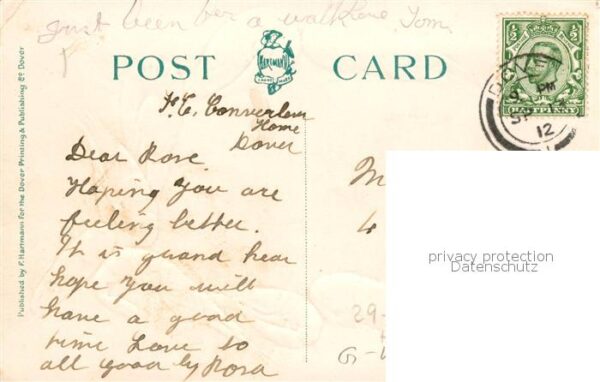 Just been for a walk love Tom
POST CARD
HARTMANN
DOVER
PM
12
HALFPENNY
F. E. Converlesn
Home
Dover
Dear Rose
Hoping you are
feeling better.
It is guand hear
hope you will
have a good
time Love to
all good by Rosa
M
4
29-
G-
privacy protection
Datenschutz
Published by F. Hartmann for the Dover Printing & Publishing Co Dover